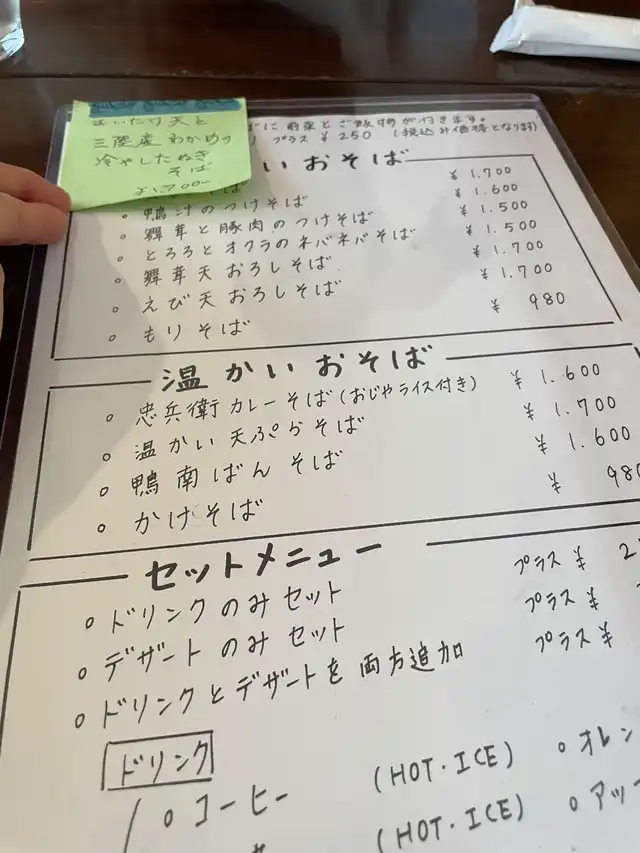 まいたけ天と
三陸産わかめの
冷やしたぬき
そば
¥1,700-
に前菜とご飯物が付きます。
プラス ¥250 (税込み価格となります)
いおそば
そば ¥1.700
○ 鴨汁のつけそば ¥1.600
○ 舞茸と豚肉のつけそば ¥1.500
○ とろろとオクラのネバネバそば ¥1.500
○ 舞茸天おろしそば ¥1.700
○ えび天おろしそば ¥1.700
○ もりそば ¥980
温かいおそば
○ 忠兵衛カレーそば(おじやライス付き) ¥1.600
○ 温かい天ぷらそば ¥1.700
○ 鴨南ばんそば ¥1.600
○ かけそば ¥980
セットメニュー
○ ドリンクのみセット プラス ¥2
○ デザートのみセット プラス ¥
○ ドリンクとデザートを両方追加 プラス ¥
ドリンク
○ コーヒー (HOT・ICE) ○ オレン
(HOT・ICE) ○ アップ